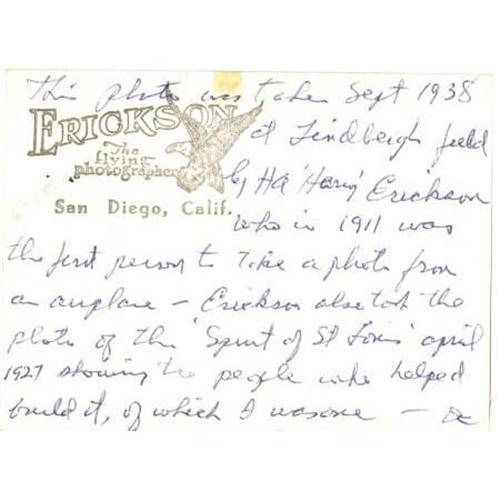 This photo was taken Sept 1938
ERICKSON
The
flying
photographer
San Diego, Calif.
at Lindbergh field
by HA 'Harry' Erickson
who in 1911 was
the first person to take a photo from
an airplane – Erickson also took the
photo of the 'Spirit of St Louis' april
1927 showing the people who helped
build it, of which I was one –